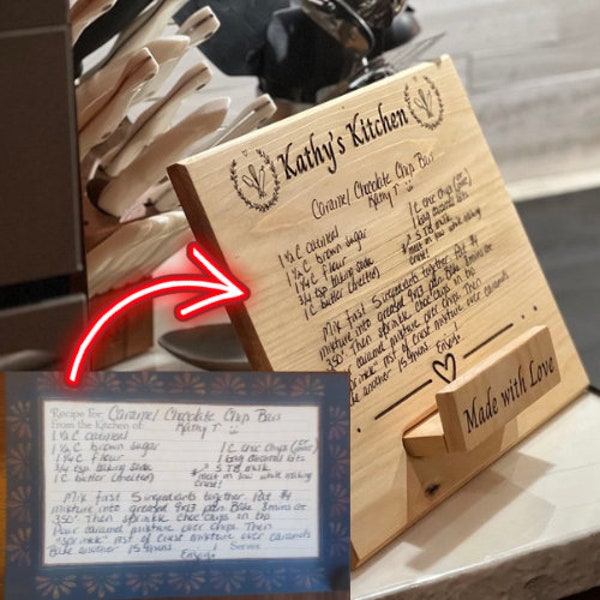 Kathy's Kitchen
Caramel Chocolate Chip Bars
Kathy T
1 ¼ C oatmeal
1 ¼ C brown sugar
1 ¼ C flour
3/4 tsp baking soda
1 C butter (melted)
1 C choc chips (or more)
1 bag caramel bits
* 5 TB milk
melt on low while making
crust!
Mix first 5 ingredients together. Pat ¾
mixture into greased 9x13 pan. Bake 8 mins at
350° Then sprinkle choc chips on top
Pour caramel mixture over chips. Then
"sprinkle" rest of crust mixture over caramels
Bake another 15 mins. Enjoy!
Made with Love
Recipe For: Caramel Chocolate Chip Bars
From the Kitchen of: Kathy T
1 ¼ C oatmeal
1 ¼ C brown sugar
1 ¼ C flour
3/4 tsp baking soda
1 C butter (melted)
1 C choc chips (or more)
1 bag caramel bits
* 5 TB milk
melt on low while making
crust!
Mix first 5 ingredients together. Pat ¾
mixture into greased 9x13 pan. Bake 8 mins at
350° Then sprinkle choc chips on top
Pour caramel mixture over chips. Then
"sprinkle" rest of crust mixture over caramels
Bake another 15 mins. Serves
Enjoy!